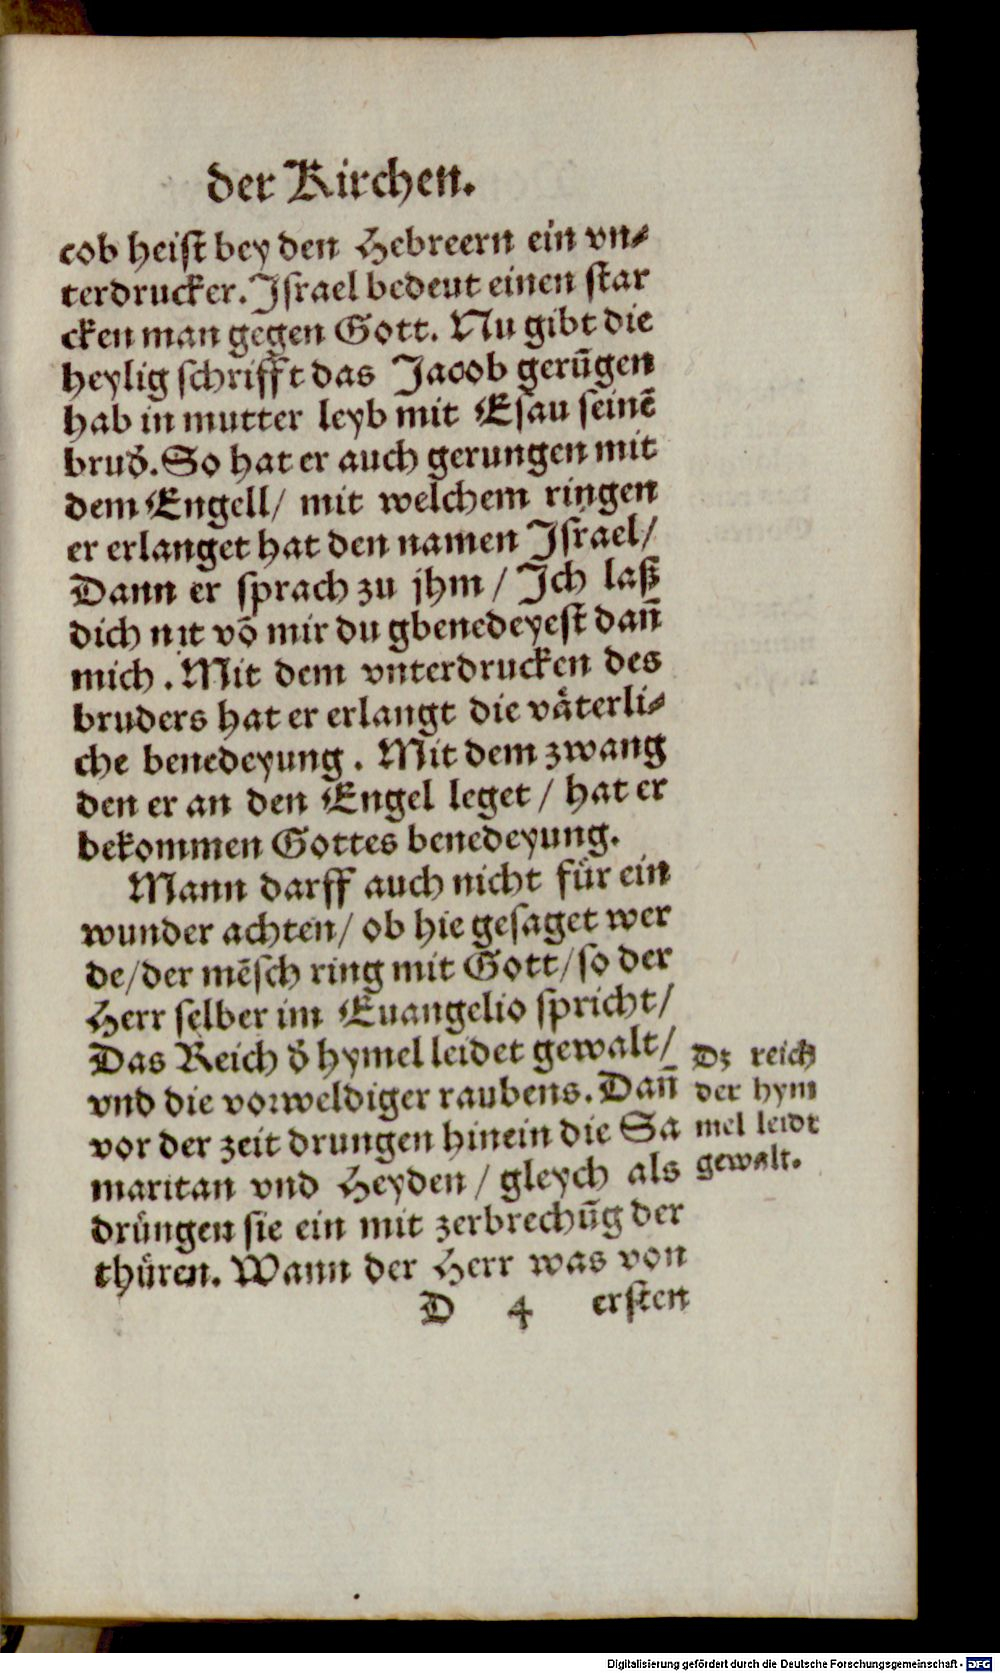 der Kirchen.
cob heist bey den Hebreern ein vn⸗
terdrucker. Israel bedeut einen star
cken man gegen Gott. Nu gibt die
heylig schrifft das Jacob gerūgen
hab in mutter leyb mit Esau seinē
brud̄. So hat er auch gerungen mit
dem Engell/ mit welchem ringen
er erlanget hat den namen Israel/
Dann er sprach zu jhm / Ich laß
dich nit vō mir du gbenedeyest dan̄
mich. Mit dem vnterdrucken des
bruders hat er erlangt die väterli⸗
che benedeyung. Mit dem zwang
den er an den Engel leget / hat er
bekommen Gottes benedeyung.
Mann darff auch nicht für ein
wunder achten/ ob hie gesaget wer
de/der mēsch ring mit Gott/so der
Herr selber im Euangelio spricht/
Das Reich d̄ hymel leidet gewalt/
vnd die vorweldiger raubens. Dan̄
vor der zeit drungen hinein die Sa
maritan vnd Heyden / gleych als
drüngen sie ein mit zerbrechūg der
thüren. Wann der Herr was von
D 4 ersten
Dz reich
der hym
mel leidt
gewalt.
Digitalisierung gefördert durch die Deutsche Forschungsgemeinschaft - DFG